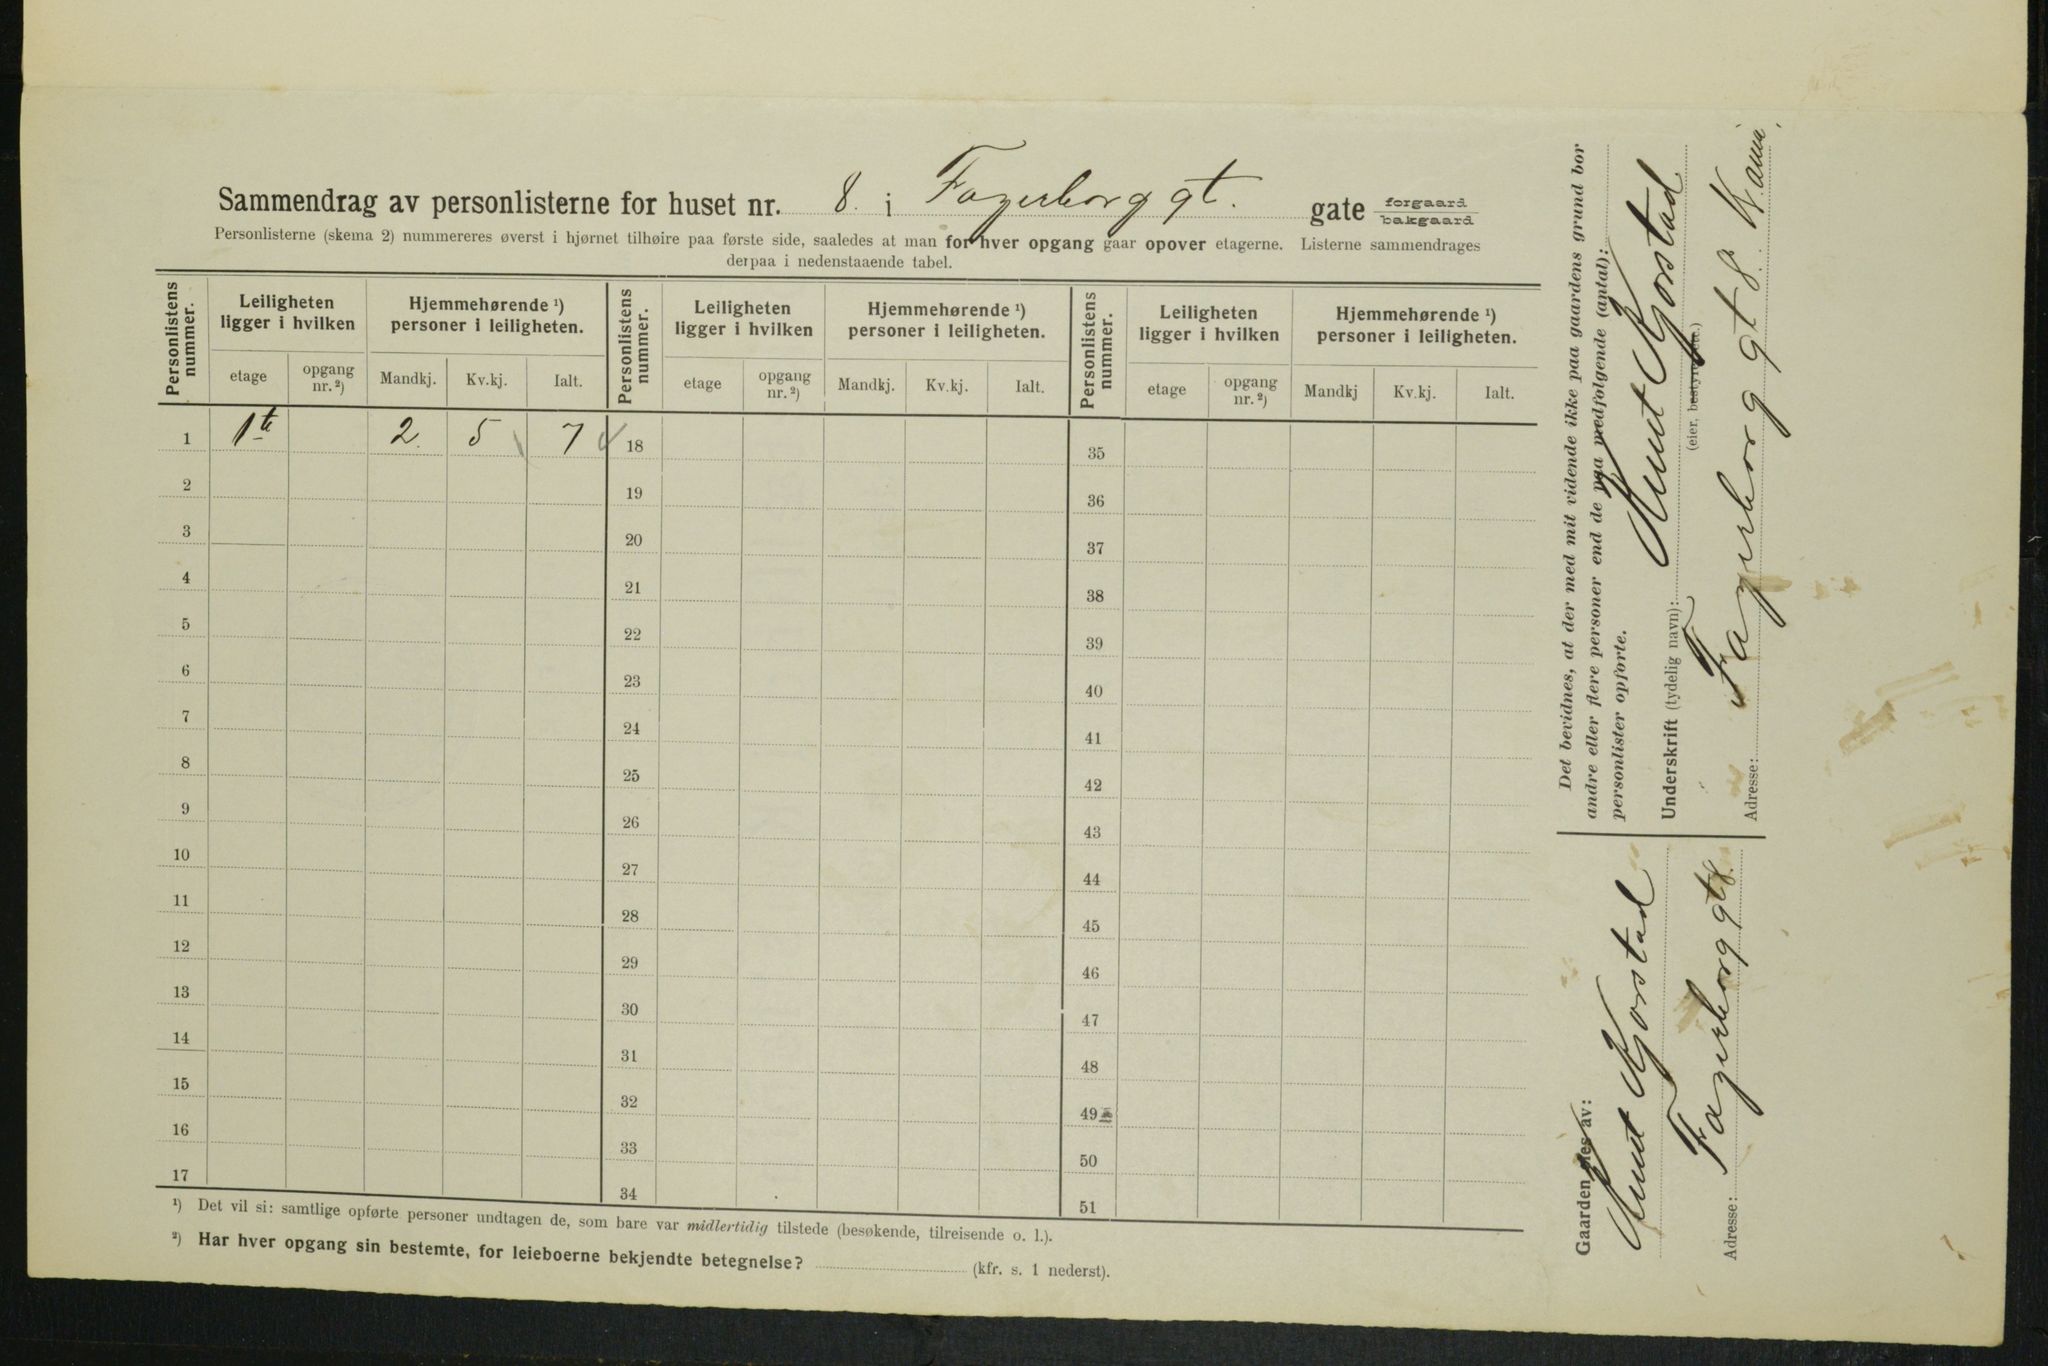 Sammendrag av personlisterne for huset nr. 8. i Fagerborg gt. gate forgaard bakgaard
Personlisterne (skema 2) nummereres øverst i hjørnet tilhøire paa første side, saaledes at man for hver opgang gaar opover etagerne. Listerne sammendrages
derpaa i nedenstaaende tabel.
Personlistens nummer. Leiligheten ligger i hvilken Hjemmehørende ¹) personer i leiligheten. Personlistens nummer. Leiligheten ligger i hvilken Hjemmehørende ¹) personer i leiligheten. Personlistens nummer. Leiligheten ligger i hvilken Hjemmehørende ¹) personer i leiligheten.
etage opgang nr. ²) Mandkj. Kv.kj. Ialt. etage opgang nr. ²) Mandkj. Kv.kj. Ialt. etage opgang nr. ²) Mandkj Kv.kj. Ialt.
1 1te 2. 5 7 18 35
2 19 36
3 20 37
4 21 38
5 22 39
6 23 40
7 24 41
8 25 42
9 26 43
10 27 44
11 28 45
12 29 46
13 30 47
14 31 48
15 32 49
16 33 50
17 34 51
¹) Det vil si: samtlige opførte personer undtagen de, som bare var midlertidig tilstede (besøkende, tilreisende o. l.).
²) Har hver opgang sin bestemte, for leieboerne bekjendte betegnelse? (kfr. s. 1 nederst).
Det bevidnes, at der med mit vidende ikke paa gaardens grund bor
andre eller flere personer end de paa medfølgende (antal):
personlister opførte.
Underskrift (tydelig navn): Knut Kjorstad
(eier, bestyrer etc.)
Adresse: Fagerborg gt 8.
Gaarden eies av:
Knut Kjorstad
Adresse: Fagerborg gt 8.